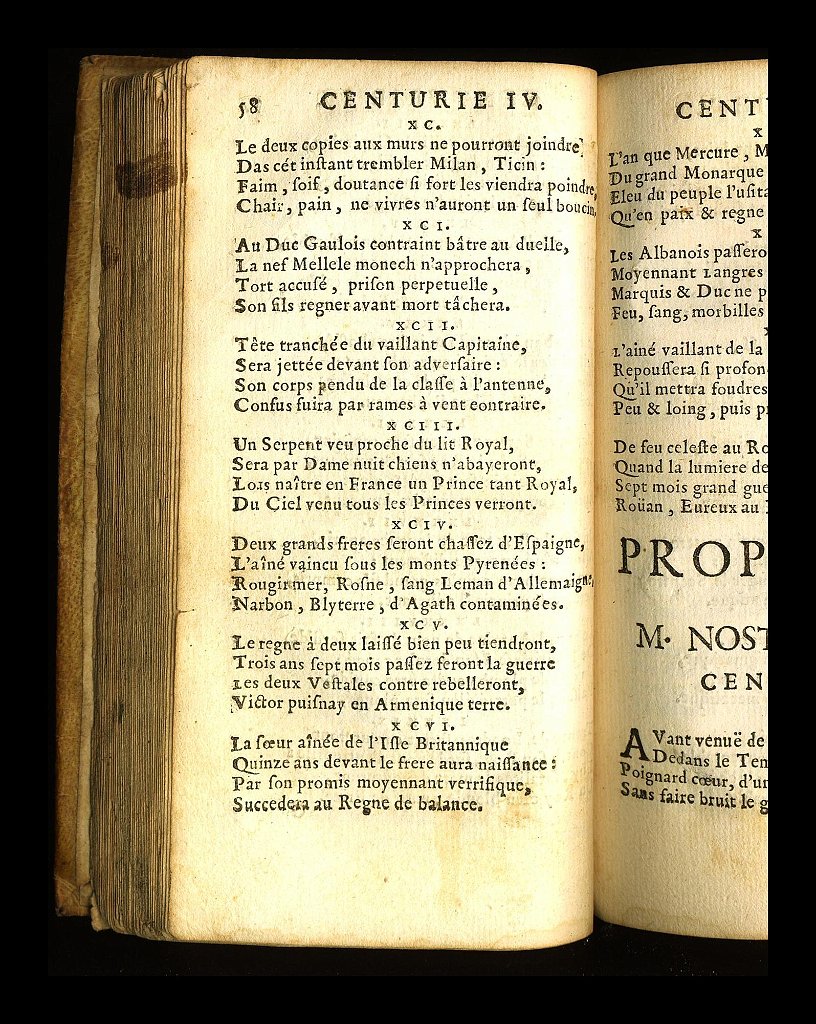 58 CENTURIE IV.
XC.
Le deux copies aux murs ne pourront joindre,
Das cét inſtant trembler Milan, Ticin :
Faim, ſoif, doutance ſi fort les viendra poindre,
Chair, pain, ne vivres n'auront un ſeul boucin.
XCI.
Au Duc Gaulois contraint bâtre au duelle,
La nef Mellele monech n'approchera,
Tort accuſé, priſon perpetuelle,
Son fils regner avant mort tâchera.
XCII.
Tête tranchée du vaillant Capitaine,
Sera jettée devant ſon adverſaire :
Son corps pendu de la claſſe à l'antenne,
Confus fuira par rames à vent eontraire.
XCIII.
Un Serpent veu proche du lit Royal,
Sera par Dame nuit chiens n'abayeront,
Lors naître en France un Prince tant Royal,
Du Ciel venu tous les Princes verront.
XCIV.
Deux grands freres ſeront chaſſez d'Eſpaigne,
L'aîné vaincu ſous les monts Pyrenées :
Rougir mer, Roſne, ſang Leman d'Allemaigne,
Narbon, Blyterre, d'Agath contaminées.
XCV.
Le regne à deux laiſſé bien peu tiendront,
Trois ans ſept mois paſſez feront la guerre
Les deux Veſtales contre rebelleront,
Victor puiſnay en Armenique terre.
XCVI.
La ſœur aînée de l'Iſle Britannique
Quinze ans devant le frere aura naiſſance :
Par ſon promis moyennant verrifique,
Succedera au Regne de balance.
CENT
X
L'an que Mercure, M
Du grand Monarque
Eleu du peuple l'uſita
Qu'en paix & regne
X
Les Albanois paſſero
Moyennant Langres
Marquis & Duc ne p
Feu, ſang, morbilles
L'ainé vaillant de la
Repouſſera ſi profon
Qu'il mettra foudres
Peu & loing, puis p
De feu celeſte au Ro
Quand la lumiere de
Sept mois grand gue
Roüan, Eureux au
PROP
M. NOST
CEN
AVant venuë de
Dedans le Tem
Poignard cœur, d'un
Sans faire bruit le g